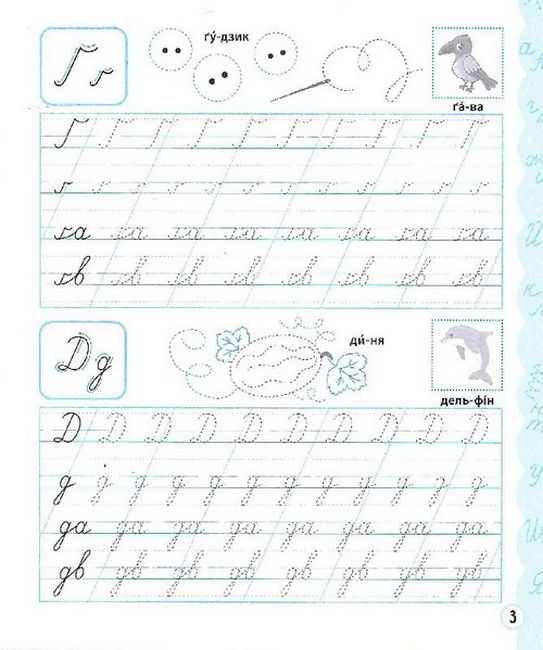 Ґ ґ
ґу́-дзик
ґа́-ва
Ґ Ґ Ґ Ґ Ґ Ґ Ґ Ґ Ґ Ґ
ґ ґ ґ ґ ґ ґ ґ ґ ґ ґ ґ ґ
ґа ґа ґа ґа ґа ґа ґа ґа
ґв ґв ґв ґв ґв ґв ґв ґв
Д д
ди́-ня
дель-фі́н
Д Д Д Д Д Д Д Д Д Д
д д д д д д д д д д д д
да да да да да да да да
дв дв дв дв дв дв дв дв
3